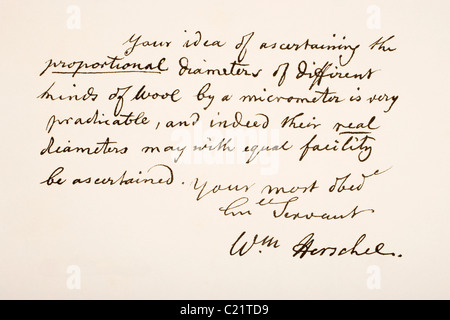 Your idea of ascertaining the
proportional diameters of different
kinds of Wool by a micrometer is very
practicable, and indeed their real
diameters may with equal facility
be ascertained. Your most obed^e
Servant
W^m Herschel.
alamy
Image ID: C21TD9
www.alamy.com